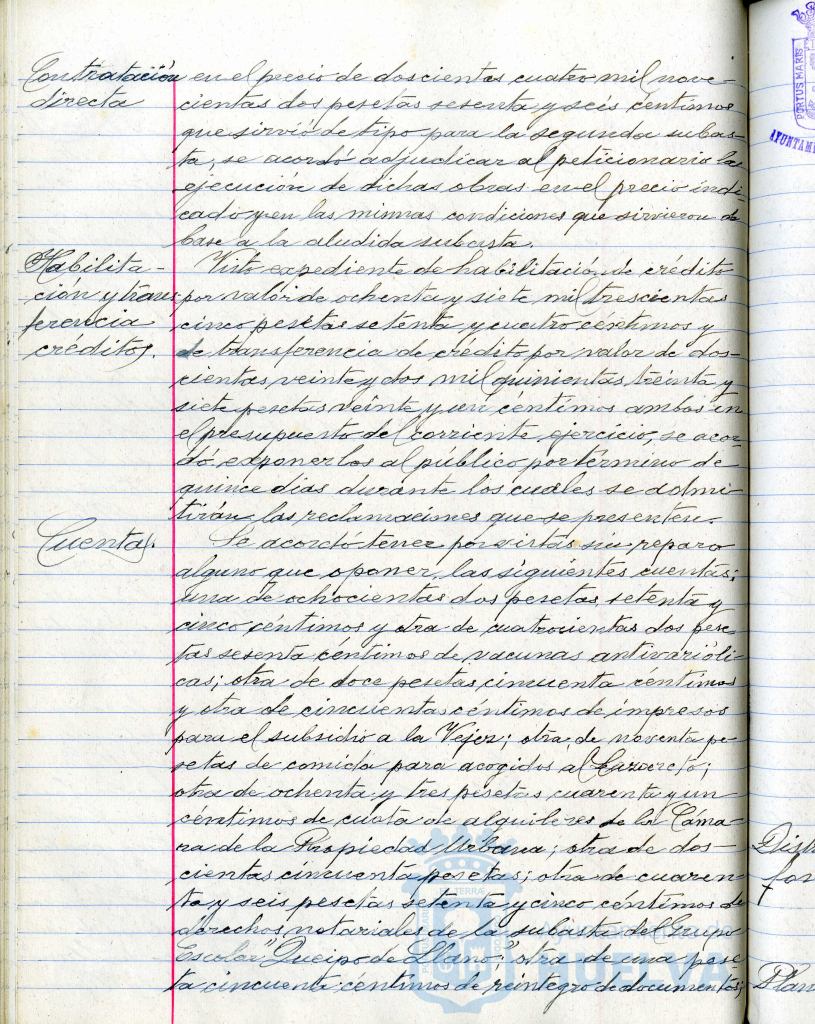 Contratación
directa
en el precio de doscientas cuatro mil nove-
cientas dos pesetas sesenta y seis centimos
que sirvió de tipo para la segunda subas-
ta, se acordó adjudicar al peticionario la
ejecución de dichas obras en el precio indi-
cado y en las mismas condiciones que sirvieron de
base a la aludida subasta.
Habilita-
ción y trans
ferencia
créditos.
Visto expediente de habilitación de crédito
por valor de ochenta y siete mil trescientas
cinco pesetas setenta y cuatro céntimos y
de transferencia de crédito por valor de dos-
cientas veinte y dos mil quinientas treinta y
siete pesetas veinte y un céntimos ambos en
el presupuesto del corriente ejercicio, se acor-
dó exponerlos al público por término de
quince dias durante los cuales se admi-
tirán las reclamaciones que se presenten.
Cuentas.
Se acordó tener por vistas sin reparo
alguno que oponer, las siguientes cuentas:
una de ochocientas dos pesetas, setenta y
cinco céntimos y otra de cuatrocientas dos pese-
tas sesenta céntimos de vacunas antivarióli-
cas; otra de doce pesetas cincuenta centimos
y otra de cincuenta céntimos de impresos
para el subsidio a la Vejez; otra, de noventa pe-
setas de comida para acogidos al
otra de ochenta y tres pesetas cuarenta y un
centimos de cuota de alquileres de la Cáma-
ra de la Propiedad Urbana; otra de dos-
cientas cincuenta pesetas; otra de cuaren-
ta y seis pesetas setenta y cinco céntimos de
derechos notariales de la subasta del Grupo
Escolar "Queipo de Llano;" otra de una pese-
ta cincuenta céntimos de reintegro de documentos;
PORTUS MARIS
AYUNTAMI
Ayuntamiento de
HUELVA